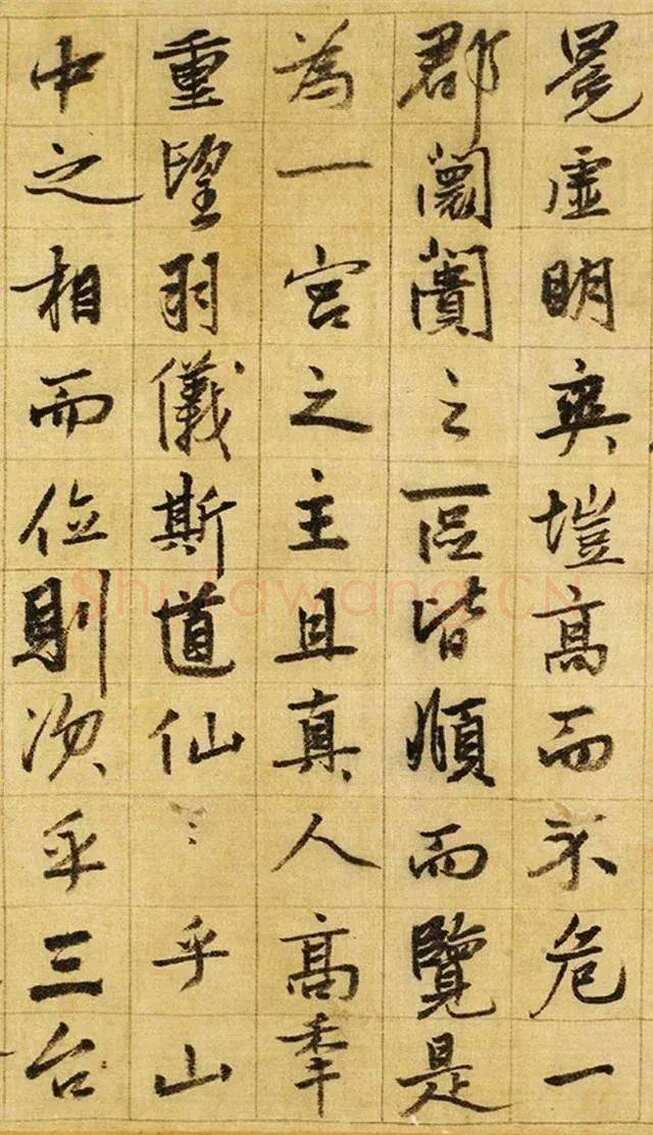 晃虛明爽塏高而不危一
郡闤闠之區皆順而覽是
為一宮之主且真人高秊
重望羽儀斯道仙〻乎山
中之相而位則次乎三台
ShufaWang.CN